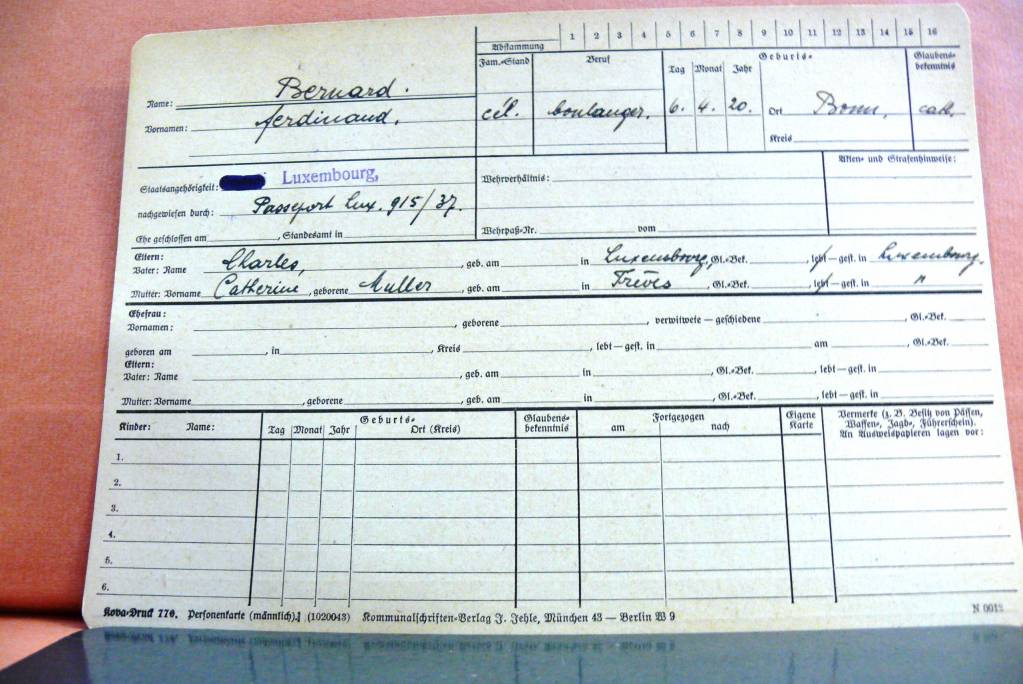 1 2 3 4 5 6 7 8 9 10 11 12 13 14 15 16
Abstammung
Fam.-Stand Beruf Geburts- Glaubens-
Tag Monat Jahr bekenntnis
Name: Bernard.
Vornamen: ferdinand. cél. boulanger. 6. 4. 20. Ort Bonn, cath.
Kreis
Akten- und Strafenhinweise:
Staatsangehörigkeit: Luxembourg, Wehrverhältnis:
nachgewiesen durch: Passeport lux. 915/37.
Ehe geschlossen am , Standesamt in Wehrpaß-Nr. vom
Eltern:
Vater: Name Charles, , geb. am in Luxembourg, Gl.-Bek. , lebt — gest. in Luxembourg.
Mutter: Vorname Catherine , geborene Muller , geb. am in Trèves , Gl.-Bek. , lebt — gest. in "
Ehefrau:
Vornamen: , geborene , verwitwete — geschiedene , Gl.-Bek.
geboren am , in , Kreis , lebt — gest. in am , Gl.-Bek.
Eltern:
Vater: Name , geb. am in , Gl.-Bek. , lebt — gest. in
Mutter: Vorname , geborene , geb. am in , Gl.-Bek. , lebt — gest. in
Kinder: Name: Geburts- Glaubens- Fortgezogen Eigene Vermerte (z. B. Besitz von Pässen,
Tag Monat Jahr Ort (Kreis) bekenntnis am nach Karte Waffen-, Jagd-, Führerschein).
An Ausweispapieren lagen vor:
1.
2.
3.
4.
5.
6.
Kova-Druck 770. Personenkarte (männlich) (1020043) Kommunalschriften-Verlag J. Jehle, München 43 — Berlin W 9